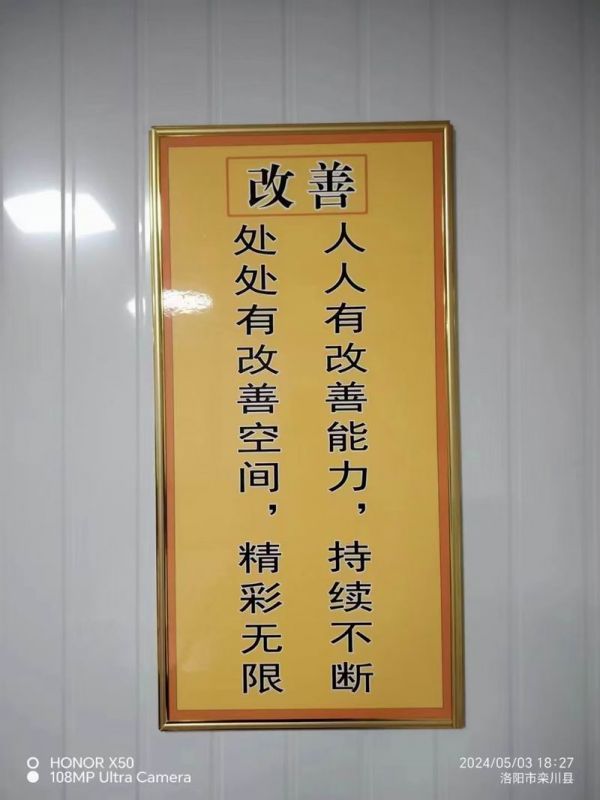 改善
人人有改善能力，持续不断
处处有改善空间，精彩无限
HONOR X50
108MP Ultra Camera
2024/05/03 18:27
洛阳市栾川县